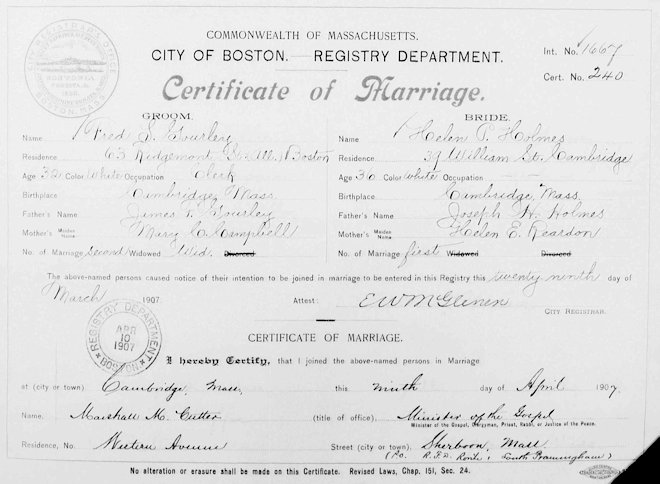 COMMONWEALTH OF MASSACHUSETTS.
CITY OF BOSTON.—REGISTRY DEPARTMENT.
Int. No. 1667
Cert. No. 240
Certificate of Marriage.
GROOM. BRIDE.
Name Fred S. Gourley Name Helen P. Holmes
Residence 63 Ridgemont St. (All.) Boston Residence 37 William St. Cambridge
Age 32 Color White Occupation Clerk Age 36 Color White Occupation
Birthplace Cambridge, Mass. Birthplace Cambridge, Mass.
Father's Name James T. Gourley Father's Name Joseph H. Holmes
Mother's Maiden Name Mary C. Campbell Mother's Maiden Name Helen E. Reardon
No. of Marriage second Widowed Wid. Divorced No. of Marriage first Widowed Divorced
The above-named persons caused notice of their intention to be joined in marriage to be entered in this Registry this twenty ninth day of
March 1907. Attest: E W McGlenen
CITY REGISTRAR.
REGISTRY DEPARTMENT
APR
10
1907
BOSTON
CERTIFICATE OF MARRIAGE.
I hereby Certify, that I joined the above-named persons in Marriage
at (city or town) Cambridge, Mass. this ninth day of April 1907.
Name: Marshall M. Cutter (title of office), Minister of the Gospel
Minister of the Gospel, Clergyman, Priest, Rabbi, or Justice of the Peace.
Residence, No. Western Avenue Street (city or town), Sherborn, Mass
(P.O. R.F.D. Route 1 South Framingham)
No alteration or erasure shall be made on this Certificate. Revised Laws, Chap. 151, Sec. 24.